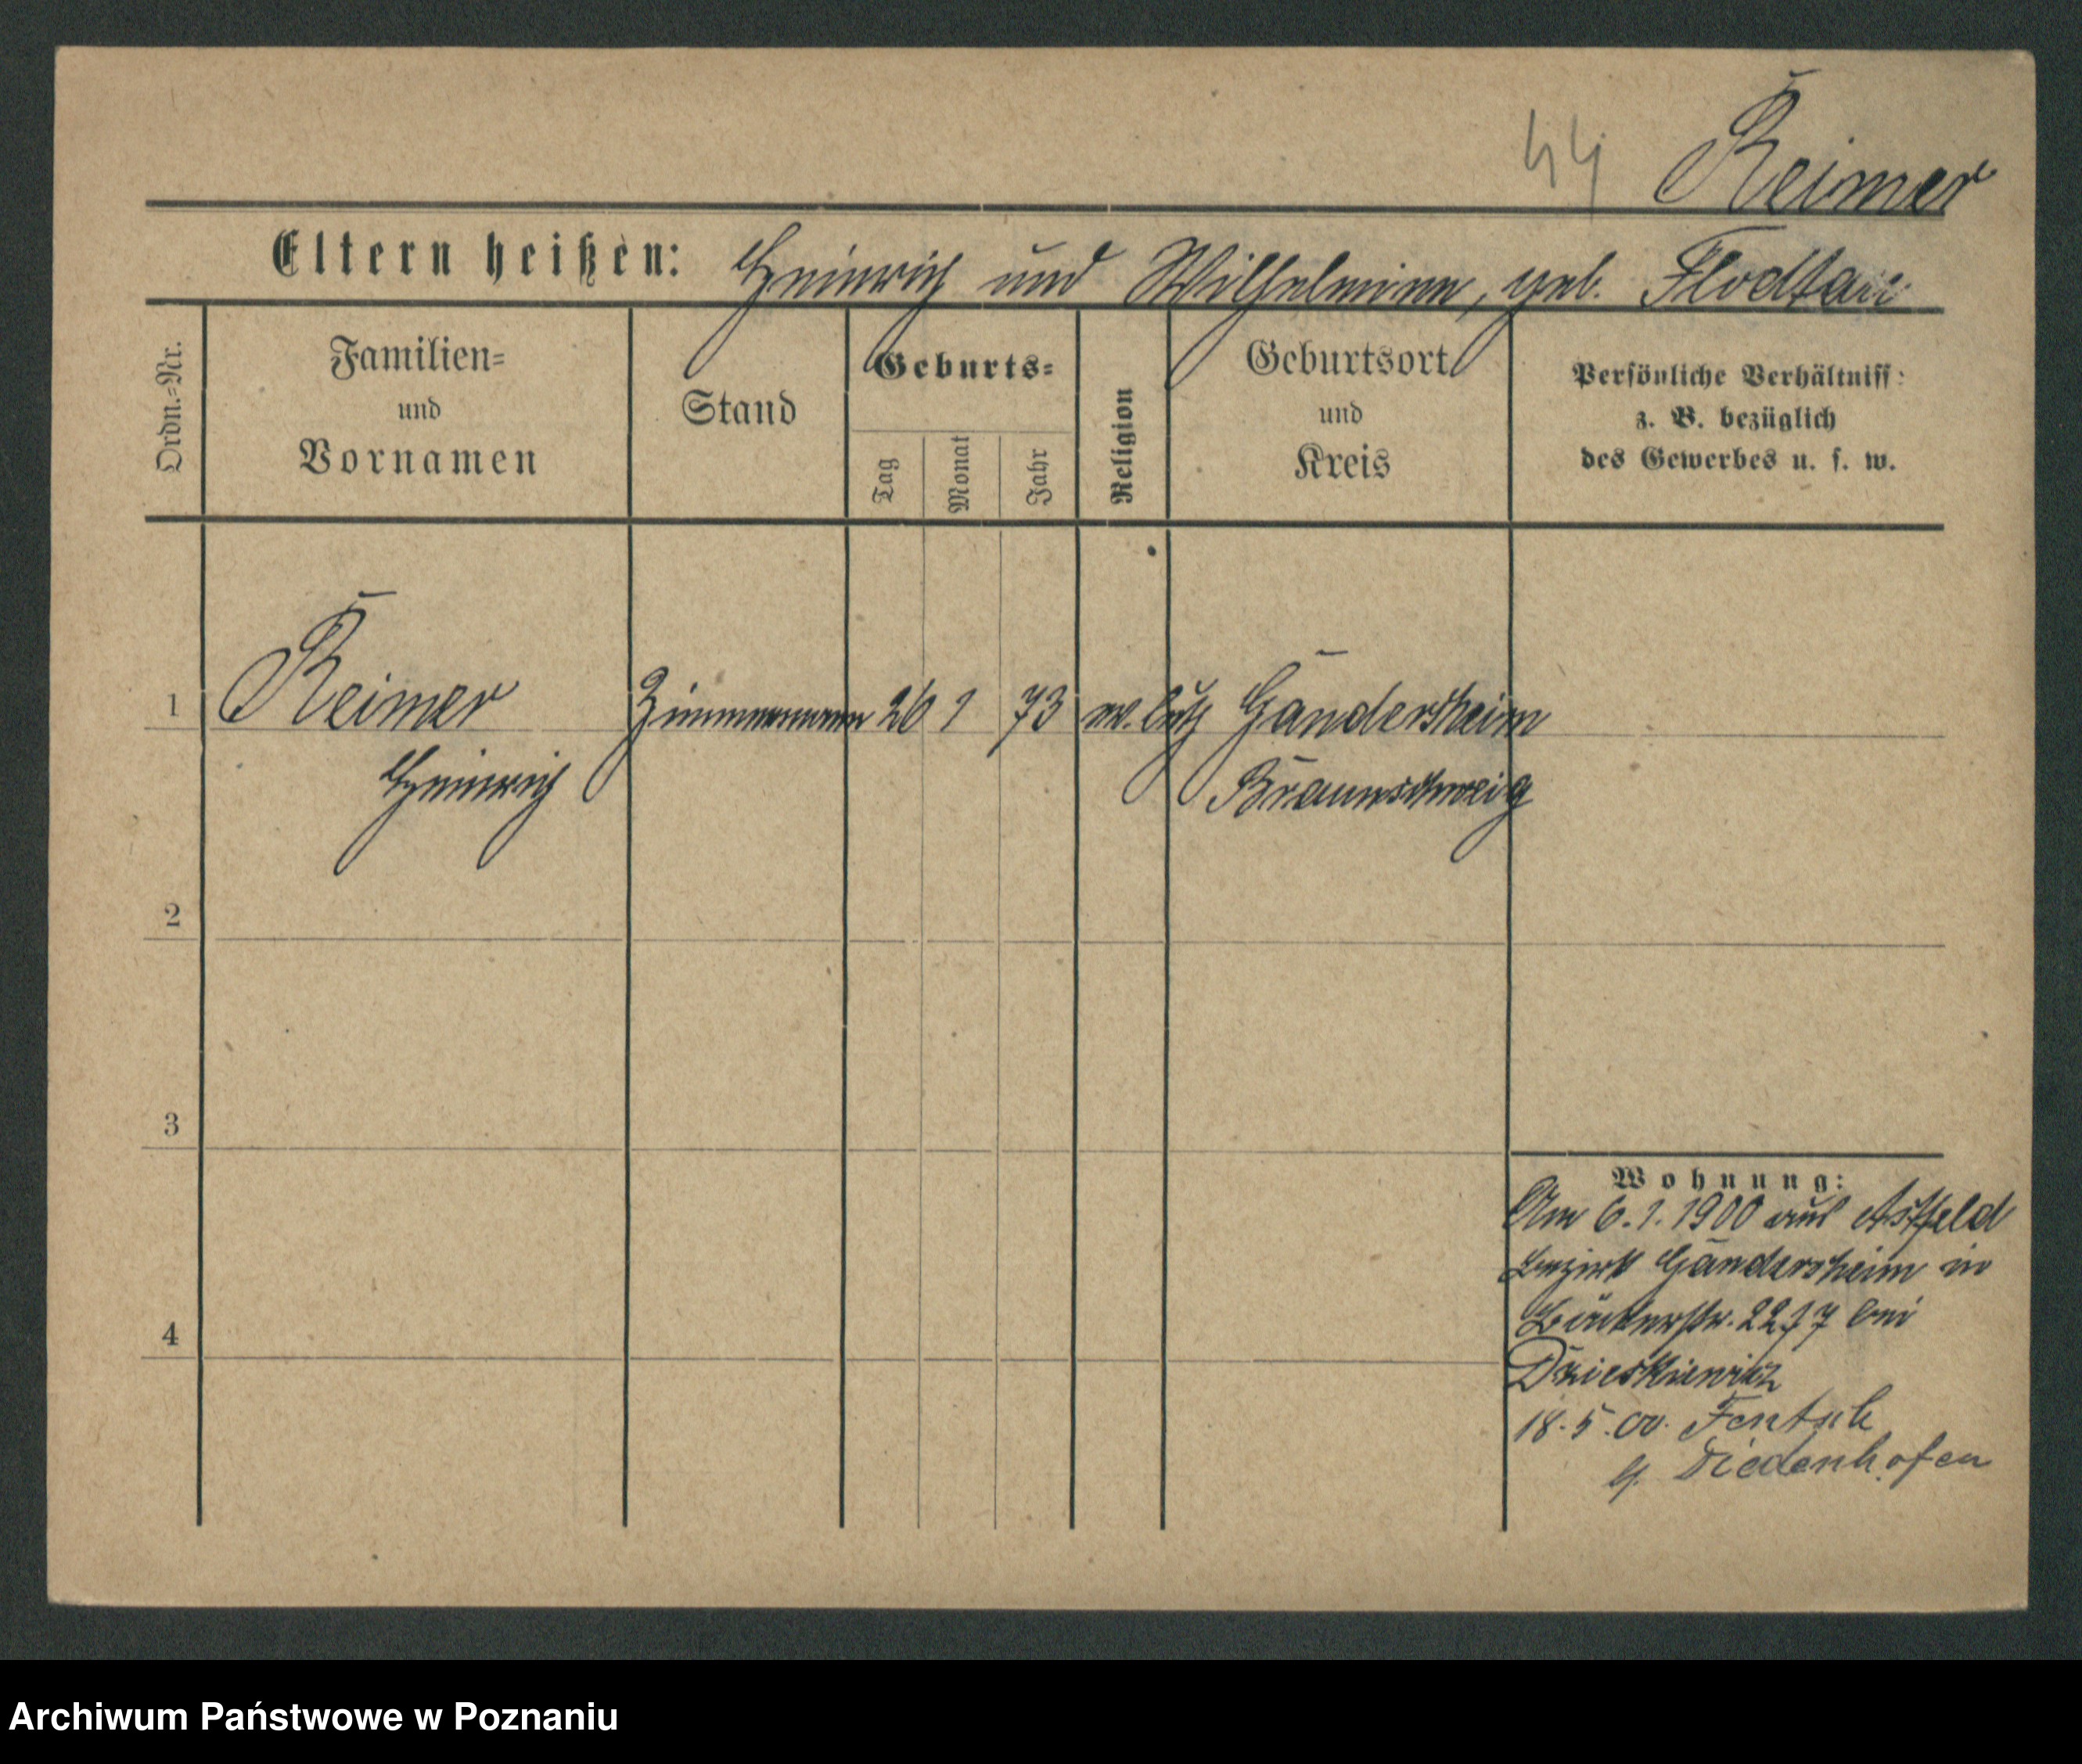 44 Reimer
Eltern heißen: Heinrich und Wilhelmine, geb.
Ordn.=Nr.
Familien=
und
Vornamen
Stand
Geburts=
Tag
Monat
Jahr
Religion
Geburtsort
und
Kreis
Persönliche Verhältniss:
z. B. bezüglich
des Gewerbes u. s. w.
1 Reimer Zimmermann 26 1 73 ev. luth Gandersheim
Heinrich Braunschweig
2
3
4
Wohnung:
Am 6.1.1900 aus Astfeld
bezirk Gandersheim in
Bäckerstr. 22 17 bei
18.5.00. Fentsch
Diedenhofen
Archiwum Państwowe w Poznaniu